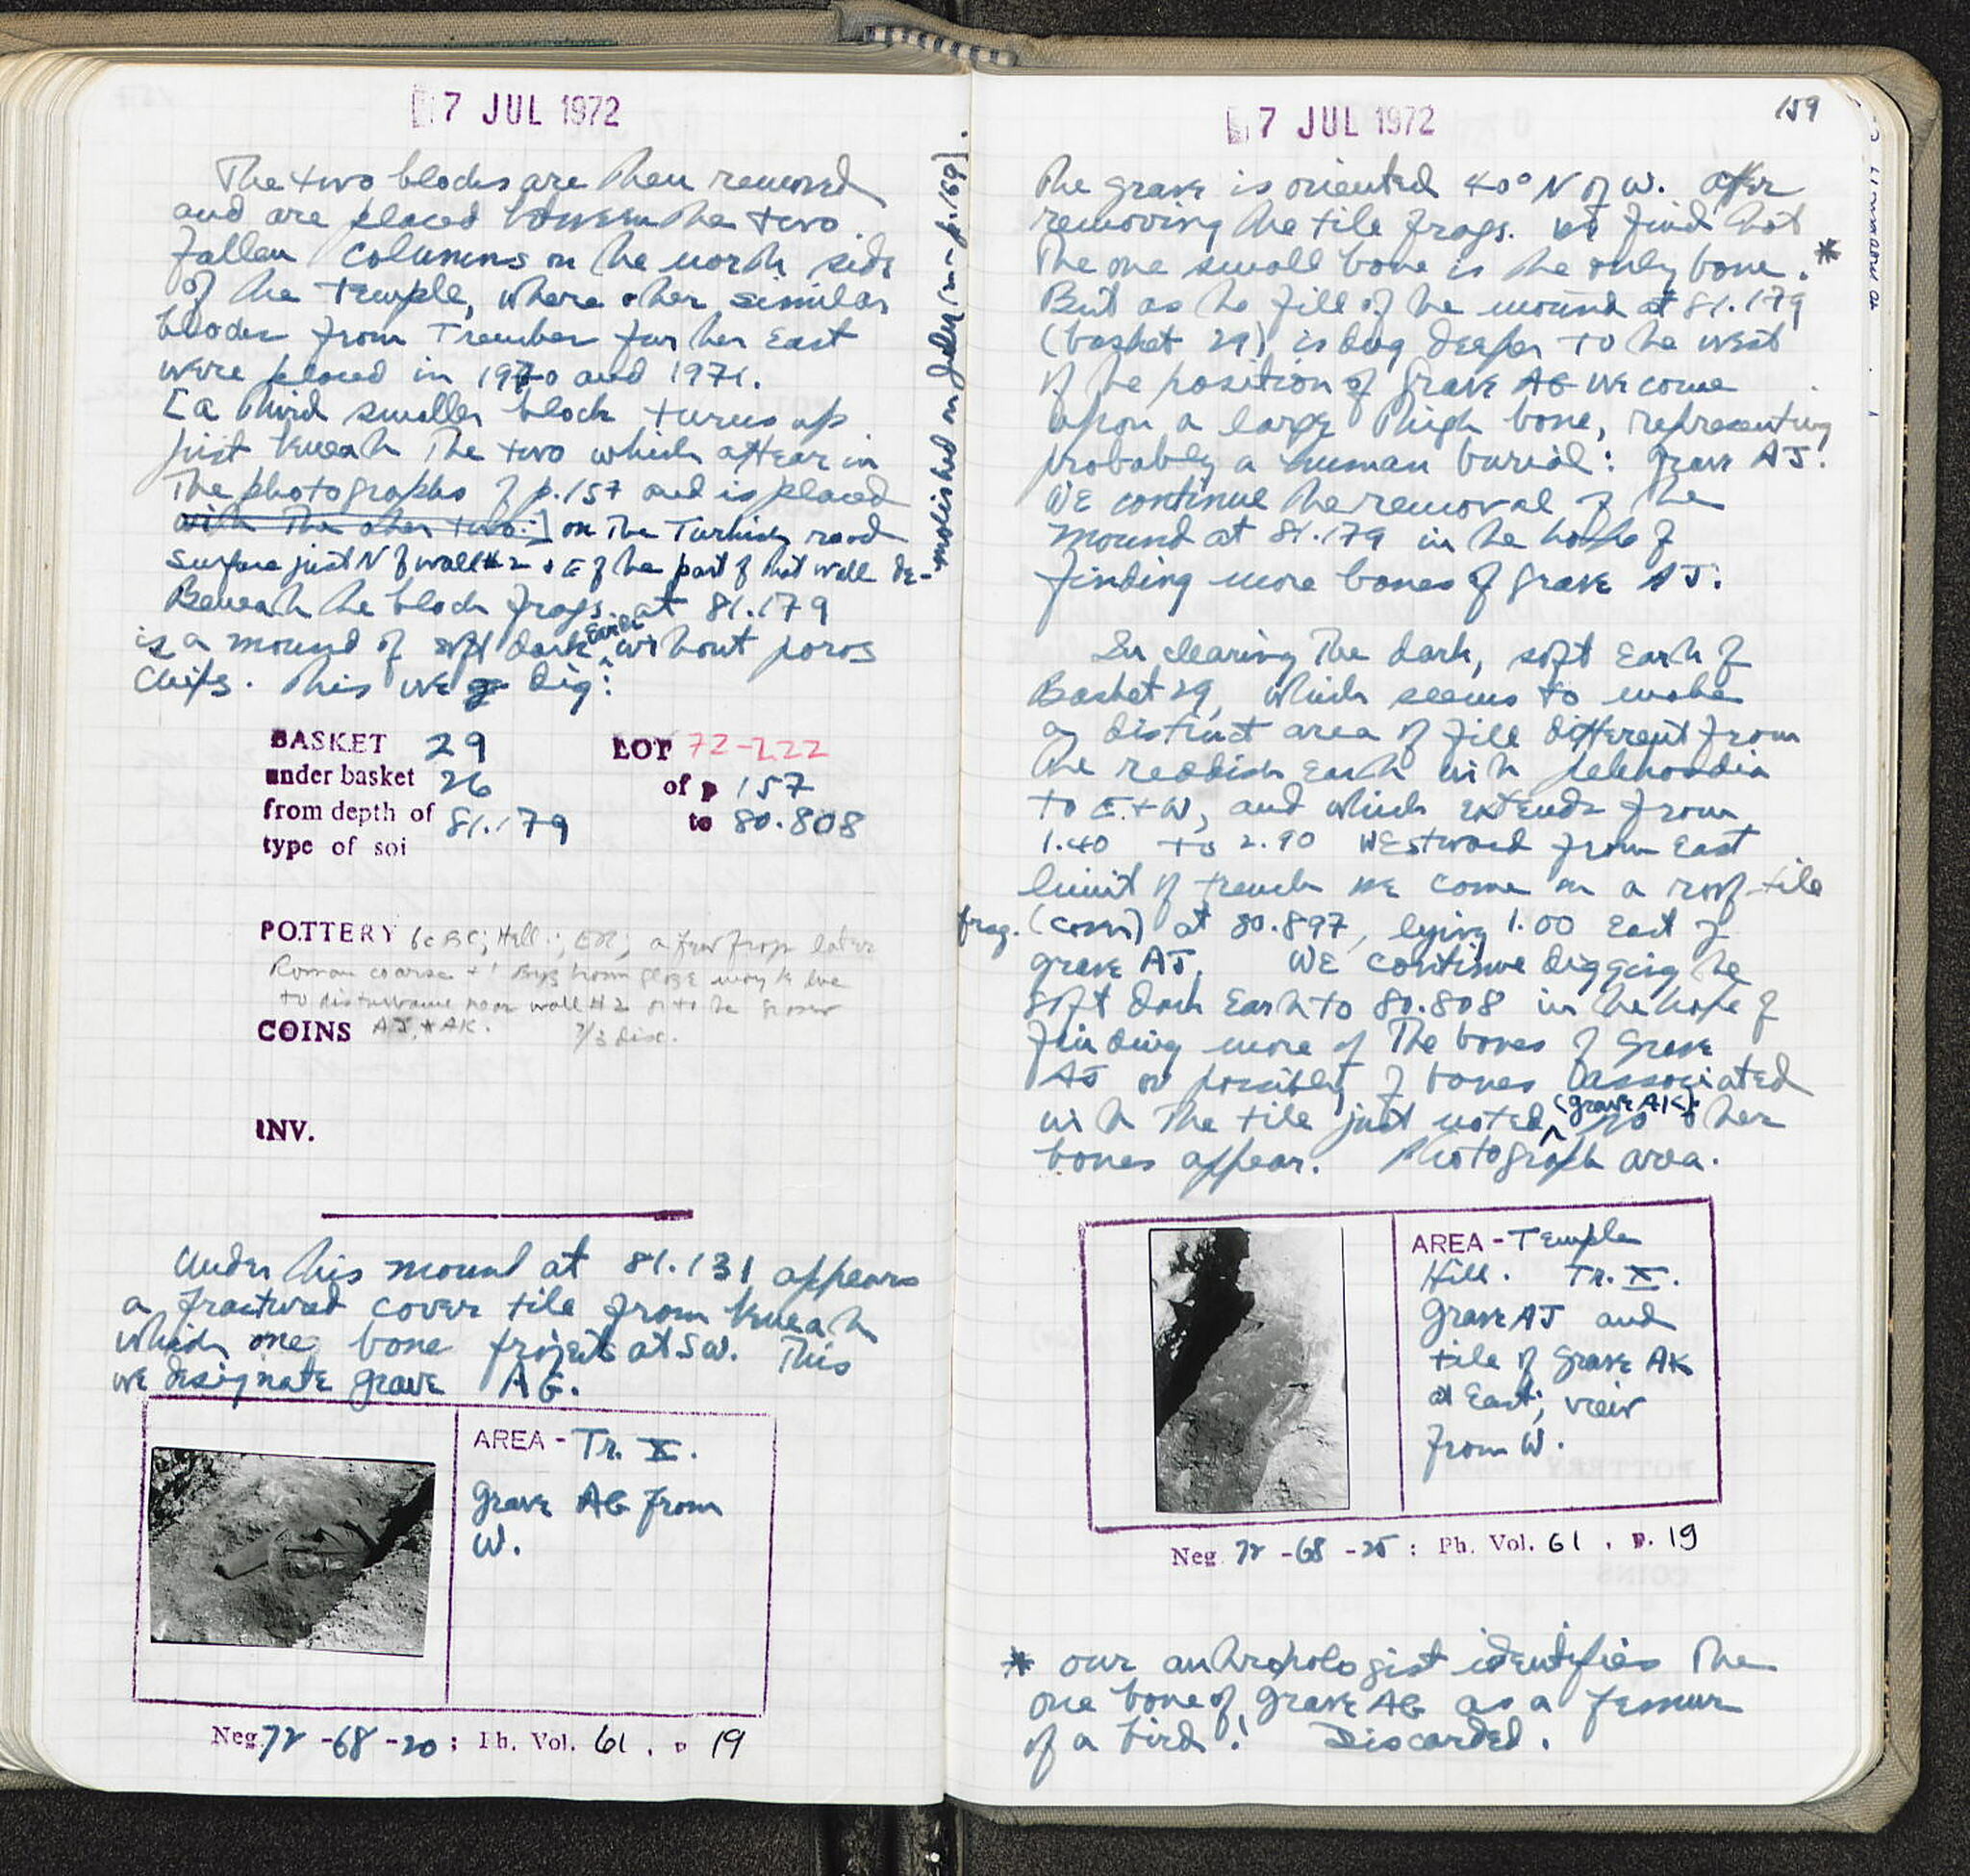 7 JUL 1972
The two blocks are then removed
and are placed between the two
fallen columns on the north side
of the temple, where other similar
blocks from Trenches further East
were placed in 1970 and 1971.
[a third smaller block turns up
just beneath the two which appear in
the photographs of p.157 and is placed
with the other two.] on the Turkish road
surface just N of wall #2 & E of the part of that wall de-
molished on July (nr p.169].
Beneath the block frags. at 81.179
is a mound of soft dark earth without poros
chips. This we dig:
BASKET 29 LOT 72-222
under basket 26 of p 157
from depth of 81.179 to 80.808
type of soi
POTTERY 6c BC; Hell.; ER; a few frags later
Roman coarse + 1 Byz brown glaze may be due
to disturbance near wall #2 or to the graves
COINS AJ & AK. 7/3 disc.
INV.
Under this mound at 81.131 appears
a fractured cover tile from beneath
which one bone projects at SW. This
we designate grave AG.
AREA - Tr. X.
Grave AG from
W.
Neg 72 -68 -20 ; Ph. Vol. 61 , p 19
7 JUL 1972
159
The grave is oriented 40° N of W. After
removing the tile frags. we find that
the one small bone is the only bone. *
But as the fill of the mound at 81.179
(basket 29) is dug deeper to the west
of the position of Grave AG we come
upon a large thigh bone, representing
probably a human burial: Grave AJ.
We continue the removal of the
mound at 81.179 in the hope of
finding more bones of Grave AJ.
In clearing the dark, soft earth of
Basket 29, which seems to make
a distinct area of fill different from
the reddish earth with
to E + W, and which extends from
1.40 to 2.90 westward from East
limit of trench we come on a roof-tile
frag. (Corin) at 80.897, lying 1.00 East of
grave AJ. We continue digging the
soft dark earth to 80.808 in the hope of
finding more of the bones of Grave
AJ or possibly of bones associated
with the tile just noted (grave AK). No other
bones appear. Photograph area.
AREA - Temple
Hill. Tr. X.
Grave AJ and
tile of Grave AK
at East; view
from W.
Neg 72 -68 -25 : Ph. Vol. 61 , p. 19
* our anthropologist identifies the
one bone of grave AG as a femur
of a bird! Discarded.